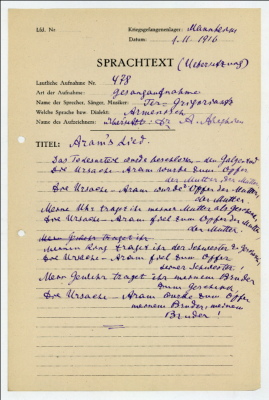 Lfd. Nr
Kriegsgefangenenlager: Mannheim
Datum: 1.II.1916
SPRACHTEXT (Uebersetzung)
Lautliche Aufnahme Nr. 478
Art der Aufnahme: Gesangaufnahme
Name der Sprecher, Sänger, Musiker: Ter-
Welche Sprache bzw. Dialekt: Armenisch
Name des Aufnehmers: Dr. A.
TITEL: Aram's Lied.
Das Todesurteil wurde beschlossen – der Galgen
Die Ursache – Aram wurde zum Opfer
der Mutter, der Mutter.
Die Ursache – Aram wurde Opfer der Mutter,
der Mutter.
Meine Uhr traget ihr meiner Mutter als Geschenk,
Die Ursache – Aram fiel zum Opfer der Mutter
der Mutter.
Mein Gewehr traget ihr
Meinen Ring traget ihr der Schwester z. Geschenk,
Die Ursache – Aram fiel zum Opfer
seiner Schwester!
Mein Gewehr traget ihr meinem Bruder
zum Geschenk,
Die Ursache – Aram wurde zum Opfer
meinem Bruder, meinem
Bruder!